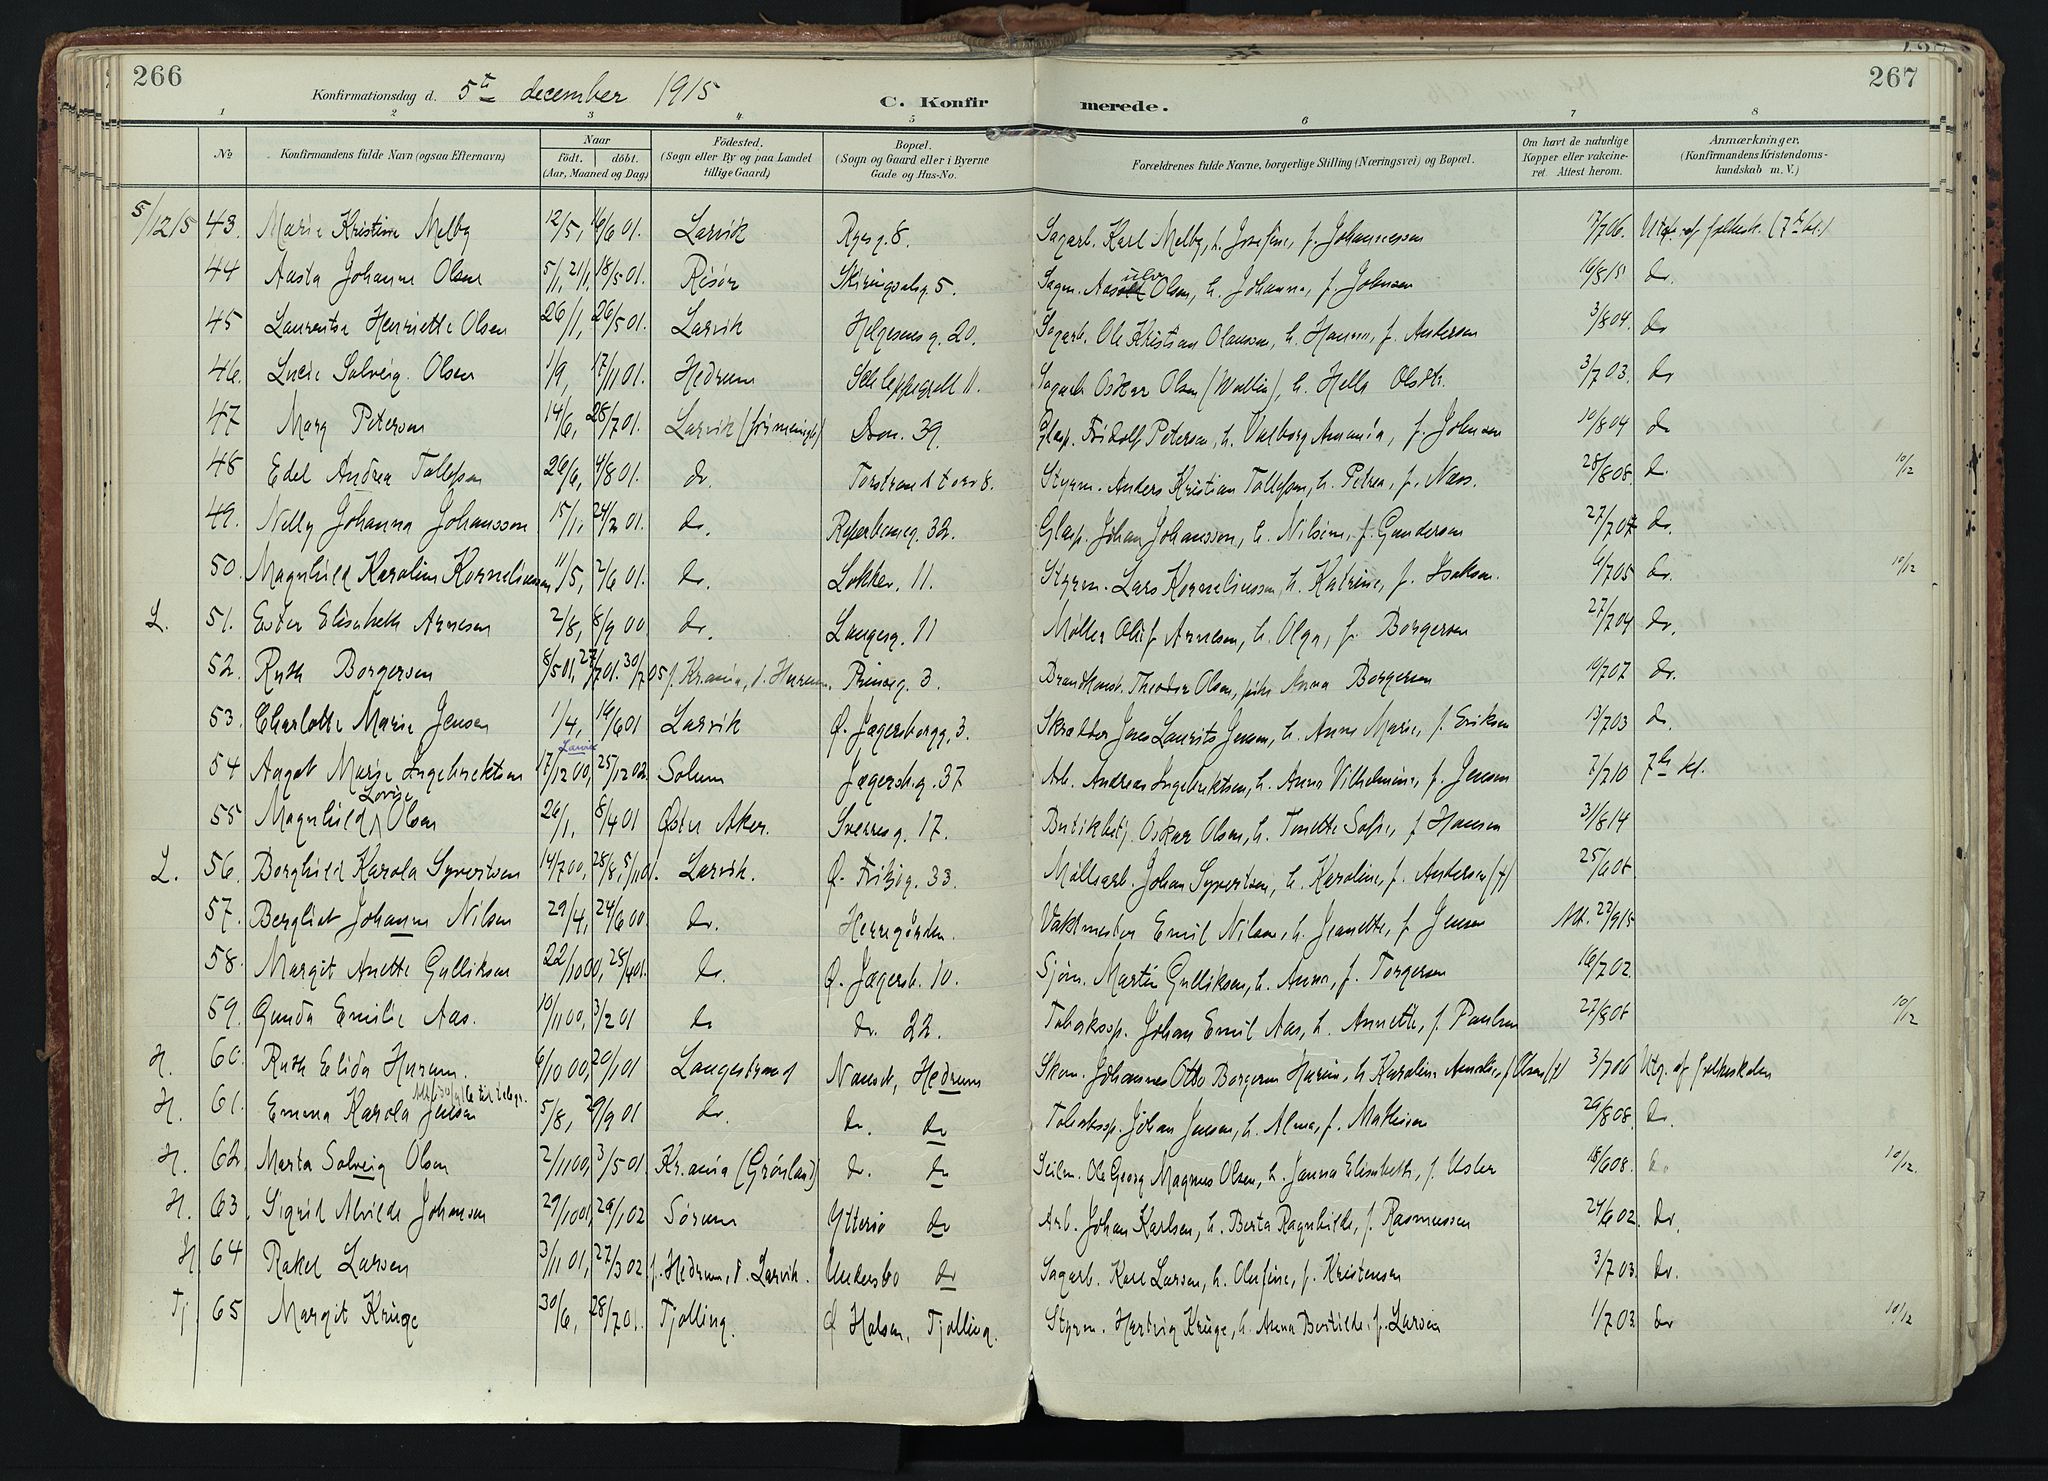 266
Konfirmationsdag d. 5te december 1915
C. Konfirmerede.
267
1 2 3 4 5 6 7 8
No
Konfirmandens fulde Navn (ogsaa Efternavn)
Naar
født. døbt.
(Aar, Maaned og Dag)
Fødested.
(Sogn eller By og paa Landet
tillige Gaard)
Bopæl.
(Sogn og Gaard eller i Byerne
Gade og Hus-No.
Forældrenes fulde Navne, borgerlige Stilling (Næringsvei) og Bopæl.
Om havt de naturlige
Kopper eller vakcine-
ret. Attest herom.
Anmærkninger.
(Konfirmandens Kristendoms-
kundskab m. V.)
5/12 15 43. Marie Kristine Melby 12/5, 16/6 01. Larvik Ryesg. 8. Sagarb. Karl Melby, h. Josefine, f. Johannessen 7/7 06. Utg. af folkesk. (7de kl.)
44 Aasta Johanne Olsen 5/1, 18/5 01. Risør Skiringsalsg. 5. Sagm. Aasulv Olsen, h. Johanna, f. Johnsen 16/8 15 do.
45 Laurentse Henriette Olsen 26/1, 26/5 01. Larvik Helgesens g. 20. Sagarb. Ole Kristian Olaussen, h. Hanna, f. Andersen 3/8 04. do
46. Lucie Solveig Olsen 1/9, 17/11 01. Hedrum Schleppegrell 11. Sagarb. Oskar Olsen (Wallin), h. Helle Olsdtr. 3/7 03. do
47 Mary Petersen 14/6, 28/7 01. Larvik Dron. 39. Glasp. Fridolf Petersen, h. Valborg Amanda, f. Johnsen 10/8 04 do
48 Edel Andrea Tollefsen 26/6, 4/8 01. do. Torstrand torv 8. Styrm. Anders Kristian Tollefsen, h. Petrea, f. Næss. 28/8 08. do. 10/12
49. Nelly Johanna Johansson 15/1, 24/2 01. do. Reperbaneg. 32. Glasp. Johan Johansson, h. Nilsine, f. Gundersen 27/7 07 do.
50. Magnhild Karoline Korneliussen 11/5, 2/6 01. do. Løkkev. 11. Styrm. Lars Korneliussen, h. Katrine, f. Isaksen. 6/7 05 do. 10/12
L. 51. Ester Elisabeth Arnesen 2/8, 8/9 00 do. Langesg. 11 Møller Oluf Arnesen, h. Olga, f. Borgersen 27/7 04 do.
52. Ruth Borgersen 8/5 01, 27/7 01. 30/7 05 f. Kr.ania, d. Hurum. Prinseg. 3. Brandkonst. Theodor Olsen, pike Anna Borgersen 10/7 07 do.
53. Charlotte Marie Jensen 1/4, 16/6 01 Larvik Ø. Jægersborgg. 3. Skrædder Jens Laurits Jensen, h. Anne Marie, f. Eriksen 13/7 03 do.
54 Aagot Marie Ingebrektsen Larvik 17/12 00, 25/12 02. Solum Jægersb.g. 37 Arb. Andreas Ingebrektsen, h. Anna Vilhelmine, f. Jensen 7/7 10 7de kl.
55 Magnhild Lovise Olsen 26/1, 8/4 01 Øster Aker. Sverresg. 17. Butikbetj. Oskar Olsen, h. Tonette Sofie, f. Hansen 31/8 14
L. 56. Borghild Karola Syvertsen 14/7 00, Larvik. Ø. Fritzøg. 33. Møllearb. Johan Syvertsen, h. Karoline, f. Andersen (†) 25/6 08
57. Bergliot Johanne Nilsen 29/4, 24/6 00. do. Herregården. Vaktmester Emil Nilsen, h. Jeanette, f. Jensen Att. 22/9 15
58. Margit Anette Gulliksen 22/10 00, 28/4 01. do. Ø. Jægersb. 10. Sjøm. Martin Gulliksen, h. Anna, f. Torgersen 16/7 02.
59. Gunda Emilie Aas. 10/11 00, 3/2 01 do do. 22. Tobakssp. Johan Emil Aas, h. Annette, f. Paulsen 27/8 08 10/12
H. 60. Ruth Elida Hurum. 6/10 00, 20/1 01 Langestrand Nanset, Hedrum Skom. Johannes Otto Borgersen Hurum, h. Karoline Amalie, f. Olsen (†) 3/7 06 Utg. af folkeskolen
H. 61. Emma Karola Jensen 5/8, 29/9 01 do. do. do Tobakssp. Johan Jensen, h. Alma, f. Mathisen 29/8 08. do.
H. 62 Marta Solveig Olsen 2/11 00, 3/5 01. Kr.ania (Grønland) do. do Seilm. Ole Georg Magnus Olsen, h. Janna Elisabeth, f. Usler 18/6 08. do 10/12.
H. 63. Sigrid Alvilde Johansen 29/10 01, 26/1 02 Sørum Ytterso do Arb. Johan Karlsen, h. Berta Ragnhilde, f. Rasmussen 24/6 02. do.
H 64 Rakel Larsen 3/11 01, 27/3 02 f. Hedrum, d. Larvik. Undersbo do Sagarb. Karl Larsen, h. Olufine, f. Kristensen 3/7 03. do.
Tj. 65 Margit Krüge 30/6, 28/7 01. Tjølling. Ø Halsen, Tjølling. Styrm. Hartvig Krüge, h. Anna Bertilde, f. Larsen 1/7 03 do 10/12